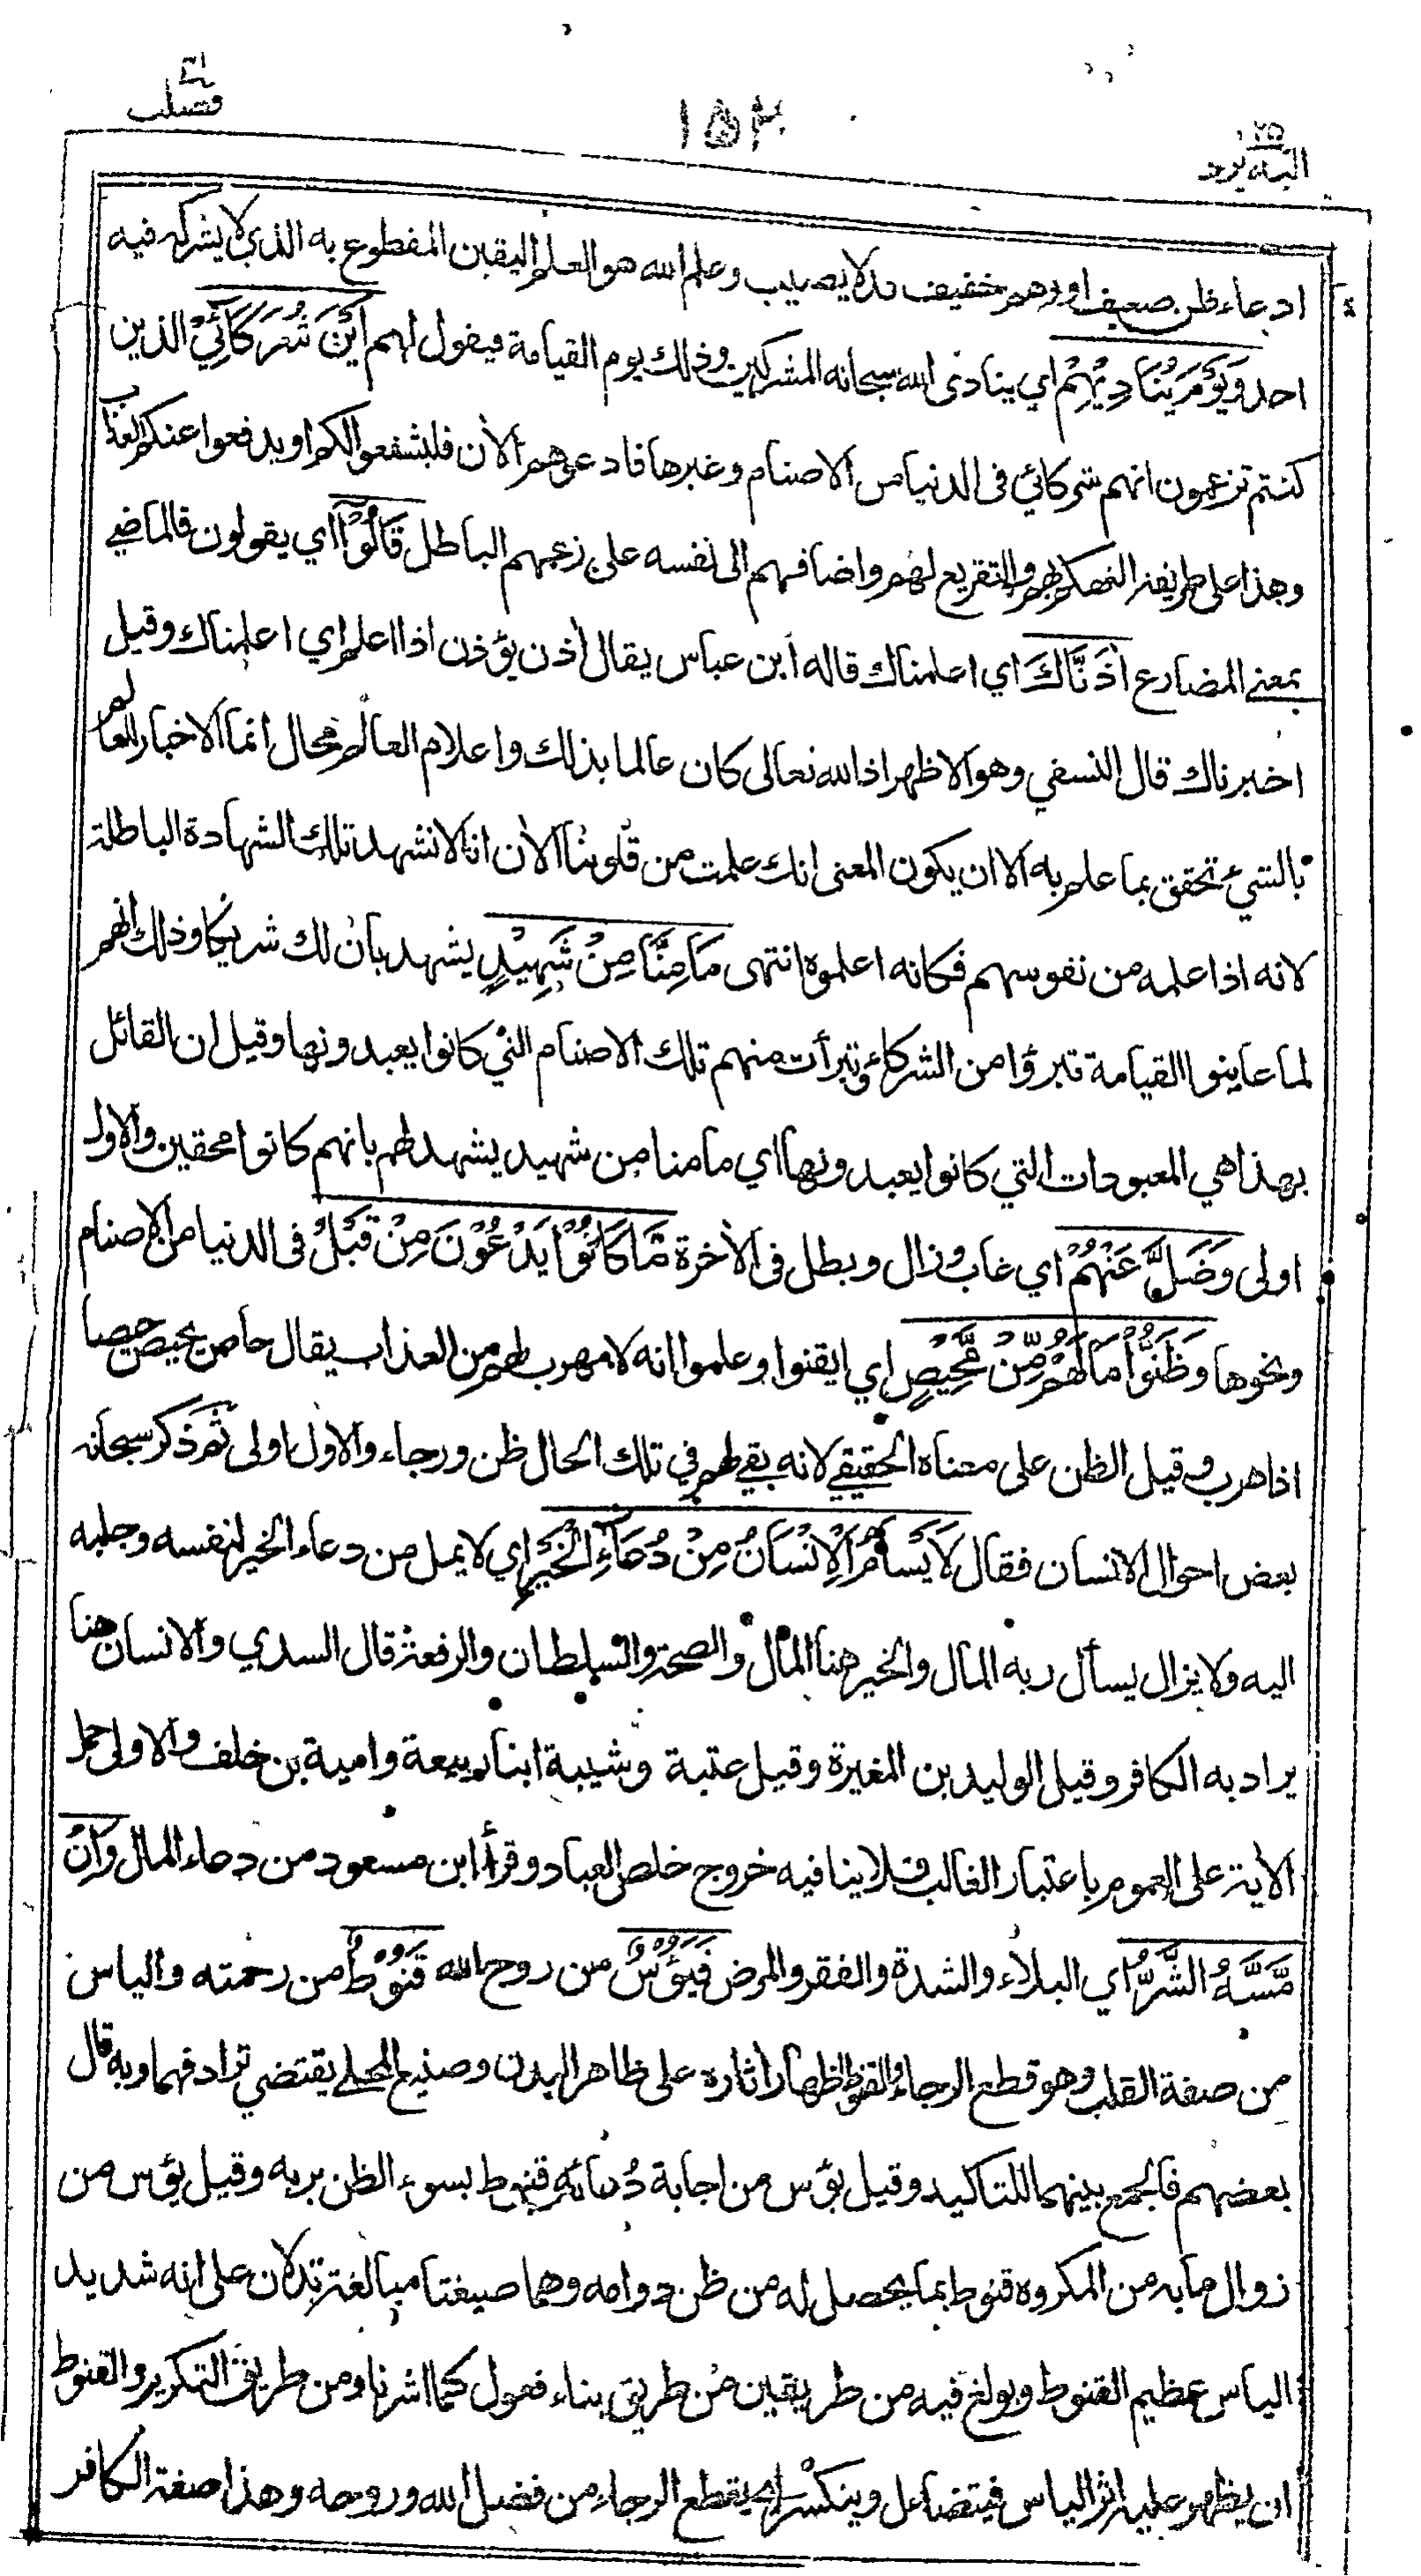 فصلت
١٥٢
٢٥
اليه يرد
ادعاء ظن ضعيف او وهم خفيف قد لا يصيب وعلم الله هو العلم اليقين المقطوع به الذي لا يشركه فيه
احد وَيَوْمَ يُنَادِيْهِمْ اي ينادى الله سبحانه المشركين وذلك يوم القيامة فيقول لهم اَيْنَ شُرَكَائِيْ الذين
كنتم تزعمون انهم شركائي فى الدنيا من الاصنام وغيرها فادعوهم الأن فليشفعوا لكم او يدفعوا عنكم العذاب
وهذا على طريقة التهكم بهم والتقريع لهم واضافهم الى نفسه على زعمهم الباطل قَالُوْا اي يقولون فالماضي
بمعنى المضارع أٰذَنَّاكَ اي اعلمناك قاله ابن عباس يقال أذن يؤذن اذا اعلم اي اعلمناك وقيل
اخبرناك قال النسفي وهو الاظهر اذ الله تعالى كان عالما بذلك واعلام العالم محال انما الاخبار للعالم
بالشيء تحقق بما علم به الا ان يكون المعنى انك علمت من قلوبنا الأن انا لا نشهد تلك الشهادة الباطلة
لانه اذا علمه من نفوسهم فكانه اعلموه انتهى مَا مِنَّا مِنْ شَهِيْدٍ يشهد بان لك شريكا وذلك انهم
لما عاينوا القيامة تبرؤا من الشركاء وتبرأت منهم تلك الاصنام التي كانوا يعبدونها وقيل ان القائل
بهذا هي المعبودات التي كانوا يعبدونها اي ما منا من شهيد يشهد لهم بانهم كانوا محقين والاول
اولى وَضَلَّ عَنْهُمْ اي غاب وزال وبطل فى الأخرة مَّا كَانُوْا يَدْعُوْنَ مِنْ قَبْلُ فى الدنيا من الاصنام
ونحوها وَظَنُّوْا مَا لَهُمْ مِّنْ مَّحِيْصٍ اي ايقنوا وعلموا انه لا مهرب لهم من العذاب يقال حاص يحيص حيصا
اذا هرب وقيل الظن على معناه الحقيقي لانه بقي لهم في تلك الحال ظن ورجاء والاول اولى ثم ذكر سبحانه
بعض احوال الانسان فقال لَا يَسْأَمُ الْاِنْسَانُ مِنْ دُعَآءِ الْخَيْرِ اي لا يمل من دعاء الخير لنفسه وجلبه
اليه ولا يزال يسأل ربه المال والخير هنا المال والصحة والسلطان والرفعة قال السدي والانسان هنا
يراد به الكافر وقيل الوليد بن المغيرة وقيل عتبة وشيبة ابنا ربيعة وامية بن خلف والاولى حمل
الأية على العموم باعتبار الغالب فلا ينافيه خروج خلص العباد وقرأ ابن مسعود من دعاء المال وَاِنْ
مَّسَّهُ الشَّرُّ اي البلاء والشدة والفقر والمرض فَيَؤُسٌ من روح الله قَنُوْطٌ من رحمته والياس
من صفة القلب وهو قطع الرجاء والقنوط اظهار أثاره على ظاهر البدن وصنيع المحلي يقتضي ترادفهما وبه قال
بعضهم فالجمع بينهما للتاكيد وقيل يؤس من اجابة دُعائه قنوط بسوء الظن بربه وقيل يؤس من
زوال ما به من المكروه قنوط بما يحصل له من ظن دوامه وهما صيغتا مبالغة تدلان على انه شديد
الياس عظيم القنوط وبولغ فيه من طريقين من طريق بناء فعول كما اشرنا ومن طريق التكرير والقنوط
ان يظهر عليه اثر الياس فيتضاءل وينكسر اي يقطع الرجاء من فضل الله وروحه وهذا صفة الكافر